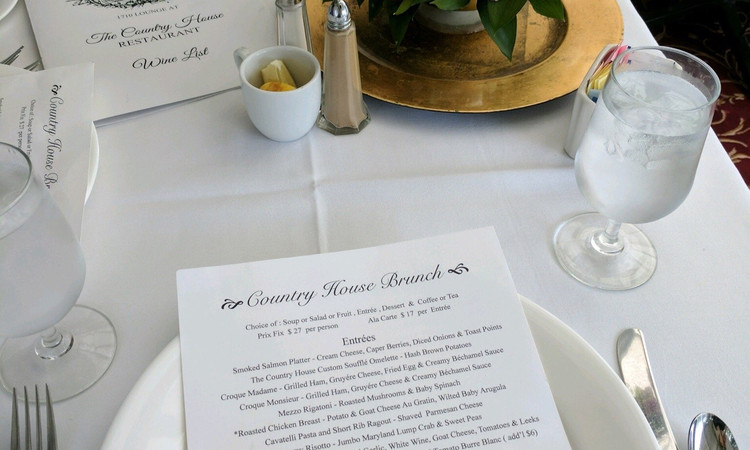 1710 LOUNGE AT
The Country House
RESTAURANT
Wine List
Country House
Choice of : Soup or Salad
Prix Fix $ 27 per person
Country House Brunch
Choice of : Soup or Salad or Fruit , Entrée , Dessert & Coffee or Tea
Prix Fix $ 27 per person Ala Carte $ 17 per Entrée
Entrées
Smoked Salmon Platter - Cream Cheese, Caper Berries, Diced Onions & Toast Points
The Country House Custom Soufflé Omelette - Hash Brown Potatoes
Croque Madame - Grilled Ham, Gruyére Cheese, Fried Egg & Creamy Béchamel Sauce
Croque Monsieur - Grilled Ham, Gruyére Cheese & Creamy Béchamel Sauce
Mezzo Rigatoni - Roasted Mushrooms & Baby Spinach
*Roasted Chicken Breast - Potato & Goat Cheese Au Gratin, Wilted Baby Arugula
Cavatelli Pasta and Short Rib Ragout - Shaved Parmesan Cheese
Risotto - Jumbo Maryland Lump Crab & Sweet Peas
Garlic, White Wine, Goat Cheese, Tomatoes & Leeks
Tomato Burre Blanc ( add'l $6)